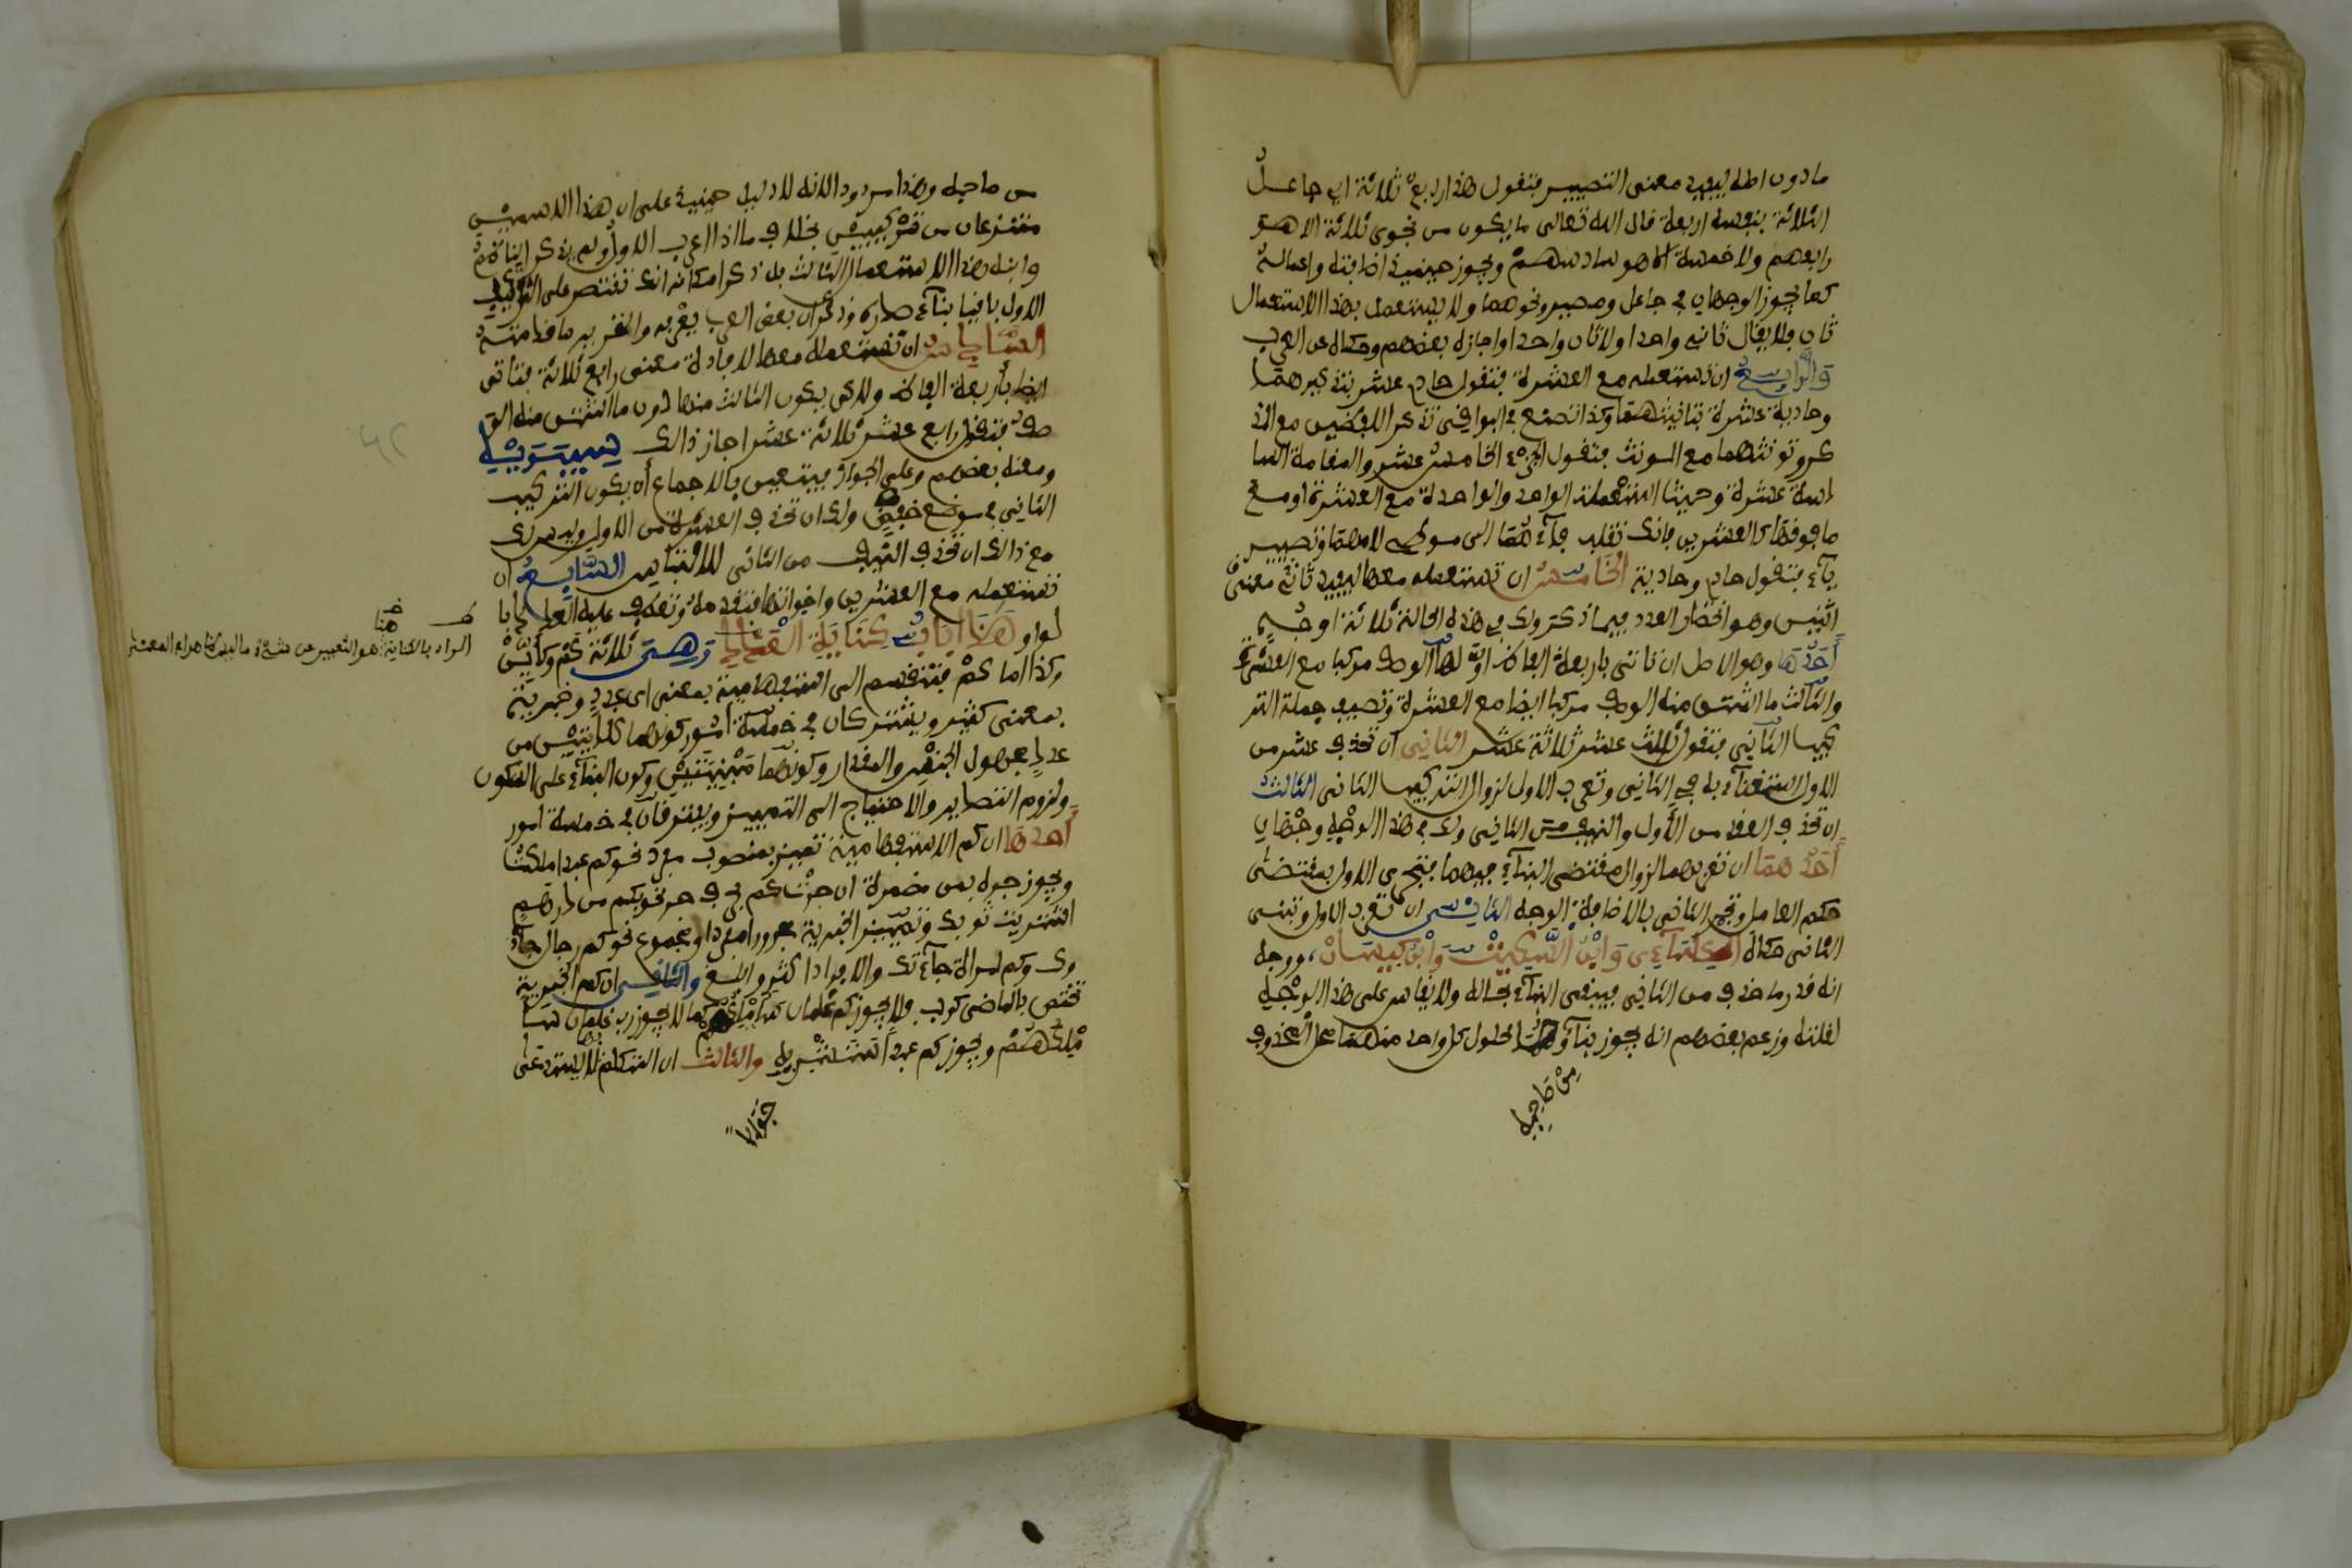 ما دون اصله ليفيد معنى التصيير فتقول هذا رابع ثلاثة اي جاعل
الثلاثة بنفسه اربعة قال الله تعالى ما يكون من نجوى ثلاثة الا هو
رابعهم ولا خمسة الا هو سادسهم ويجوز حينئذ اضافته واعماله
كما يجوز الوجهان في جاعل ومصير ونحوهما ولا يستعمل بهذا الاستعمال
ثان فلا يقال ثاني واحد ولا ثان واحدا واجازه بعضهم وحكاه عن العرب
والرابع ان تستعمله مع العشرة فتقول حادي عشر بتذكيرهما
وحادية عشرة بتانيثهما وكذا تصنع في البواقي تذكر اللفظين مع المذ
كر وتؤنثهما مع المونث فتقول الجزء الخامس عشر والمقامة السا
دسة عشرة وحيث استعملت الواحد والواحدة مع العشرة او مع
ما فوقها كالعشرين فانك تقلب فاءهما الى موطن لامهما وتصيير
ياء فتقول حاد وحادية الخامس ان تستعمله معها ليفيد ثاني معنى
اثنين وهو انحصار العدد فيما ذكر ولك في هذه الحالة ثلاثة اوجه
احدها وهو الاصل ان تاتي باربعة الفاظ اولها الوصف مركبا مع العشرة
والثالث ما اشتق منه الوصف مركبا ايضا مع العشرة وتضيف جملة التر
كيب الثاني فتقول ثالث عشر ثلاثة عشر الثاني ان تحذف عشر من
الاول استغناء به في الثاني وتعرب الاول لزوال التركيب الثاني الثالث
ان تحذف العقد من الاول والنيف من الثاني ولك في هذا الوجه وجهان
احدهما ان تعربهما لزوال مقتضى البناء فيهما فتجري الاول بمقتضى
حكم العامل وتجر الثاني بالاضافة الوجه الثاني ان تعرب الاول وتبني
الثاني حكاه الكسائي وابن السكيت وابن كيسان ووجهه
انه قدر ما حذف من الثاني فيبقى البناء بحاله ولا يقاس على هذا الوجه
لقلته وزعم بعضهم انه يجوز بناؤهما لحلول كل واحد منهما محل المحذوف
من صاحبه
من صاحبه وهذا مردود لانه لا دليل حينئذ على ان هذا الاسمين
منتزعان من تركيبين بخلاف ما اذا اعرب الاول ولم يذكر الناظم
وابنه هذا الاستعمال الثالث بل ذكرا مكانه انك تقتصر على التركيب
الاول باقيا بناء صدره وذكر ان بعض العرب يعربه والتقرير ما قدمته
السادس ان تستعمله معها لافادة معنى رابع ثلاثة فتاتي
ايضا باربعة الفاظ ولاكن يكون الثالث منها دون ما اشتق منه الو
صف فتقول رابع عشر ثلاثة عشر اجاز ذالك سيبويه
ومنعه بعضهم وعلى الجواز فيتعين بالاجماع ان يكون التركيب
الثاني في موضع خفض ولك ان تحذف العشرة من الاول وليس لك
مع ذالك ان تحذف النيف من الثاني للالتباس السابع ان
تستعمله مع العشرين واخواتها فتقدمه وتعطف عليه العقد با
لواو هذا باب كناية العدد وهي ثلاثة كم وكاين
وكذا اما كم فتنقسم الى استفهامية بمعنى اي عدد وخبرية
بمعنى كثير ويشتركان في خمسة امور كونهما كنايتين عن
عدد مجهول الجنس والمقدار وكونهما مبنيتين وكون البناء على السكون
ولزوم التصدير والاحتياج الى التمييز ويفترقان في خمسة امور
احدها ان كم الاستفهامية تميز بمنصوب مفرد نحو كم عبدا ملكت
ويجوز جره بمن مضمرة ان جرت كم بحرف جر نحو بكم من درهم
اشتريت ثوبك وتمييز الخبرية مجرور مفرد او مجموع نحو كم رجال جاء
وك وكم امراة جاءتك والافراد اكثر وابلغ والثاني ان كم الخبرية
تختص بالماضي كرب فلا يجوز كم غلمان لي ساملكهم كما لا يجوز رب غلمان سا
ملكهم ويجوز كم عبدا ستشتريه والثالث ان المتكلم لا يستدعي
جوابا
هنا
المراد بالكناية هو التعبير عن شيء